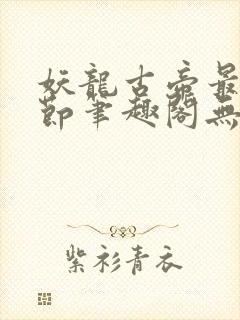 妖龍古帝最
節筆趣閣無
紫衫青衣